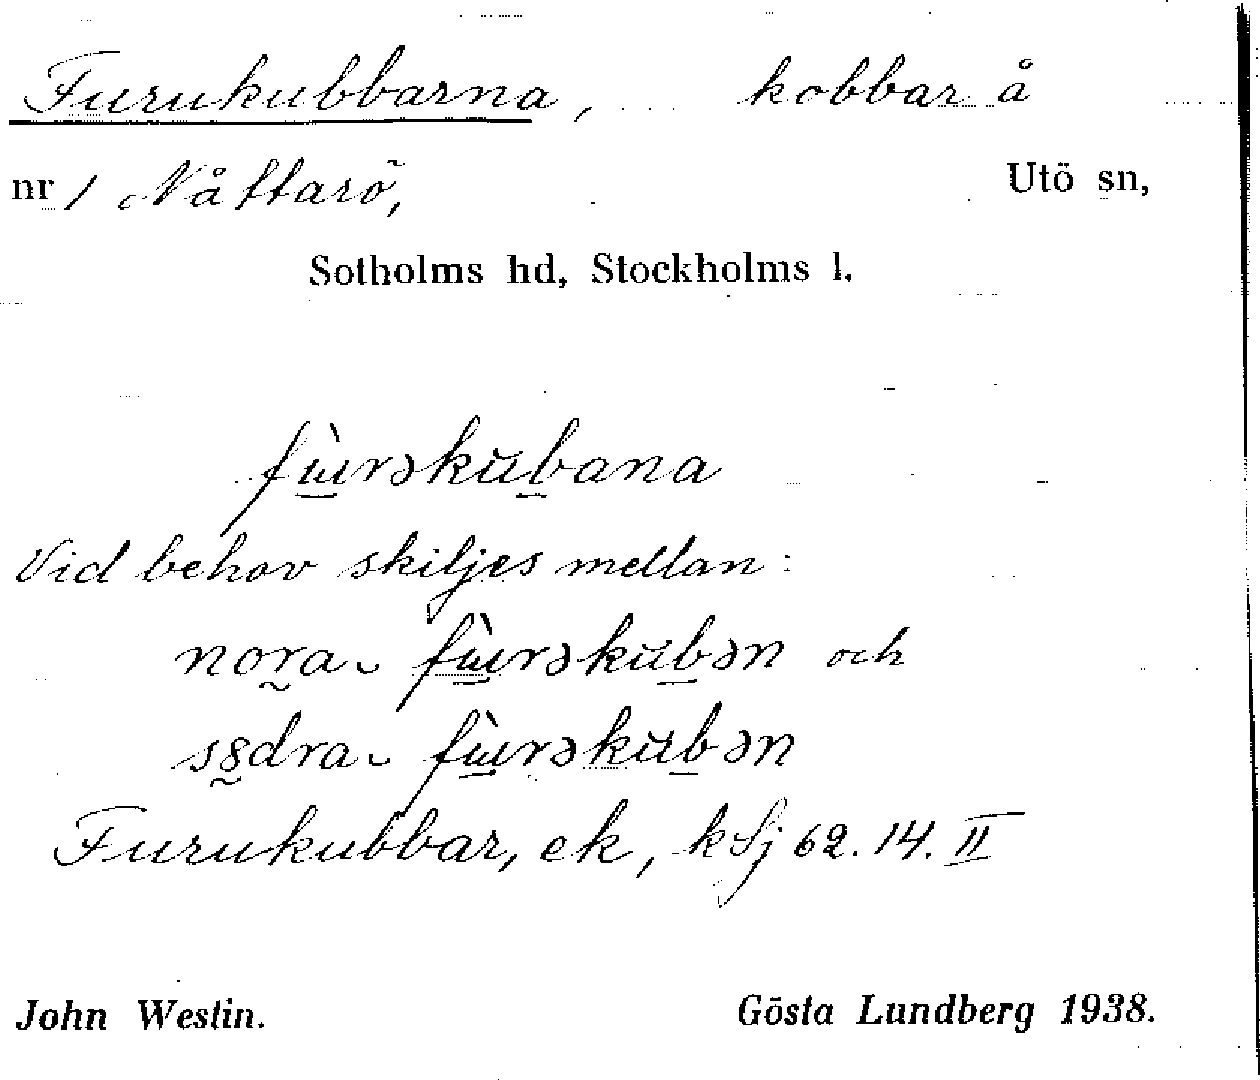 Furukubbarna, kobbar å
nr 1 Nåttarö, Utö sn,
Sotholms hd, Stockholms l.
fùrəskŭbana
Vid behov skiljes mellan:
nora fùrəskŭbən och
södra fùrəskŭbən
Furukubbar, ek, kSj 62.14.II
John Westin. Gösta Lundberg 1938.